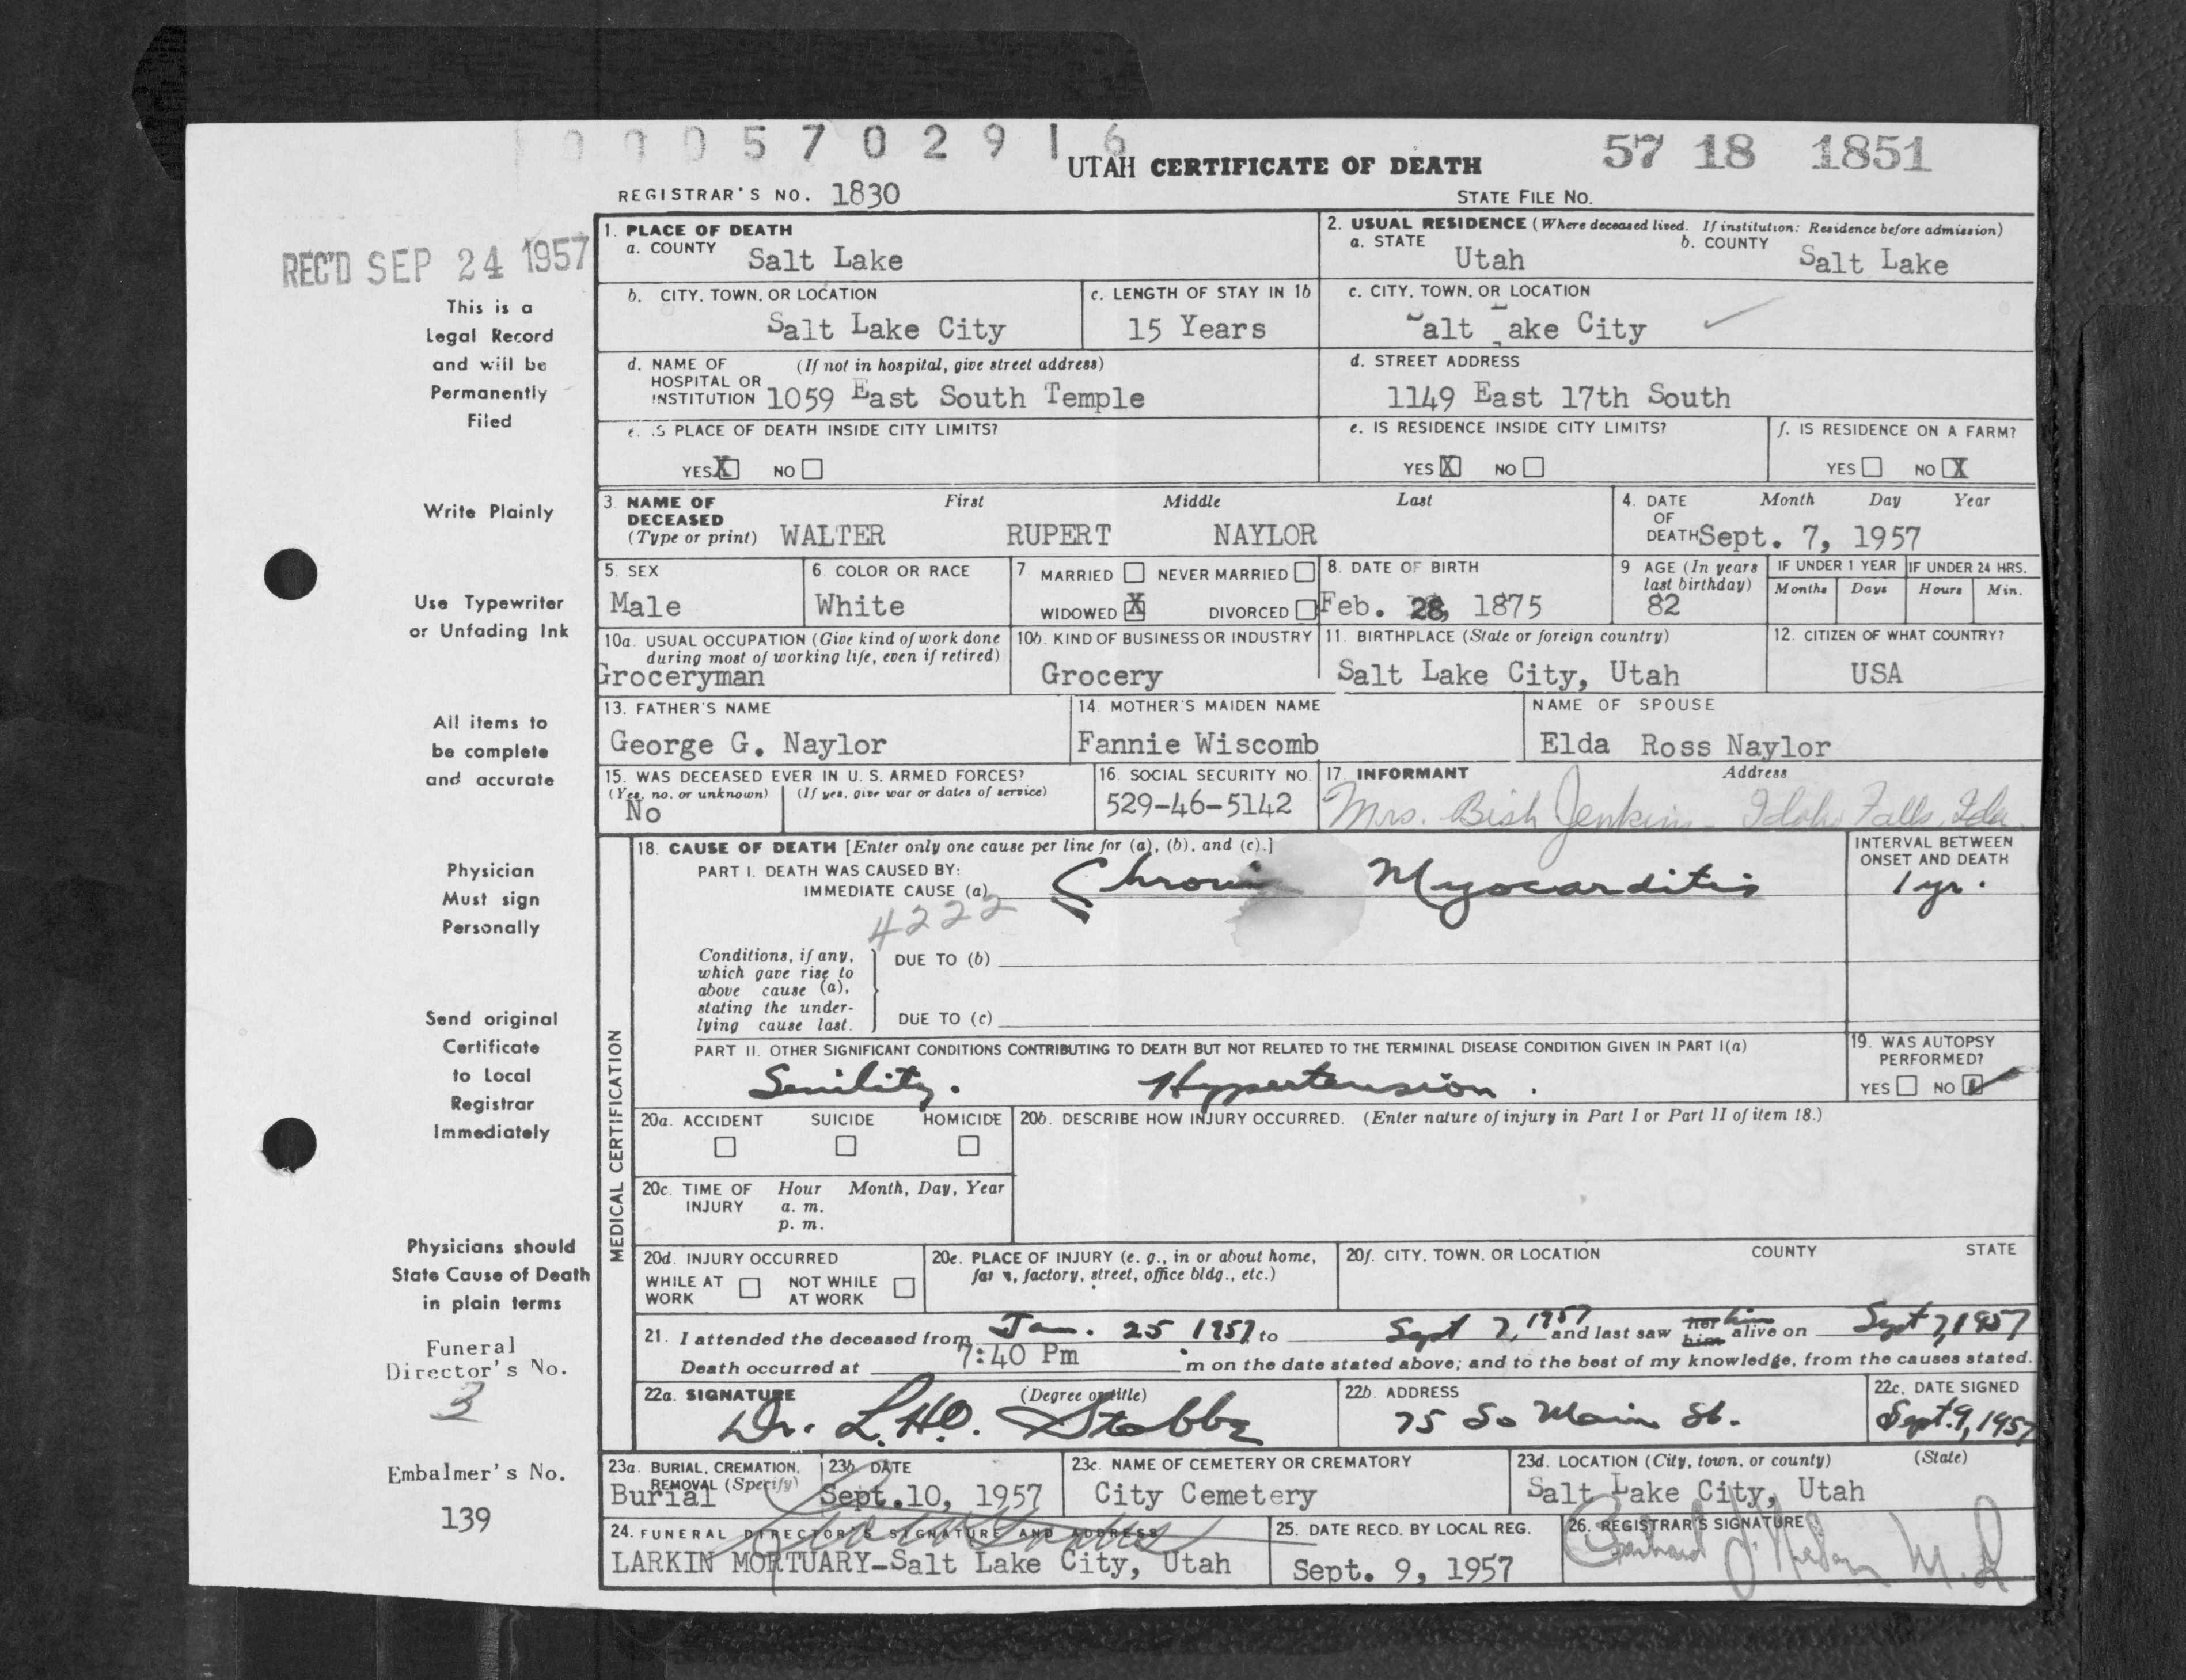 1 0 0 0 5 7 0 2 9 1 6
57 18 1851
UTAH CERTIFICATE OF DEATH
REGISTRAR'S NO. 1830
STATE FILE NO.
REC'D SEP 24 1957
This is a
Legal Record
and will be
Permanently
Filed
Write Plainly
Use Typewriter
or Unfading Ink
All items to
be complete
and accurate
Physician
Must sign
Personally
Send original
Certificate
to Local
Registrar
Immediately
Physicians should
State Cause of Death
in plain terms
Funeral
Director's No.
3
Embalmer's No.
139
1. PLACE OF DEATH
a. COUNTY Salt Lake
2. USUAL RESIDENCE (Where deceased lived. If institution: Residence before admission)
a. STATE Utah b. COUNTY Salt Lake
b. CITY, TOWN, OR LOCATION
Salt Lake City
c. LENGTH OF STAY IN 1b
15 Years
c. CITY, TOWN, OR LOCATION
Salt Lake City
d. NAME OF (If not in hospital, give street address)
HOSPITAL OR
INSTITUTION 1059 East South Temple
d. STREET ADDRESS
1149 East 17th South
e. IS PLACE OF DEATH INSIDE CITY LIMITS?
YES X NO
e. IS RESIDENCE INSIDE CITY LIMITS?
YES X NO
f. IS RESIDENCE ON A FARM?
YES NO X
3. NAME OF DECEASED First Middle Last
(Type or print) WALTER RUPERT NAYLOR
4. DATE OF DEATH Month Day Year
Sept. 7, 1957
5. SEX
Male
6 COLOR OR RACE
White
7 MARRIED NEVER MARRIED
WIDOWED X DIVORCED
8. DATE OF BIRTH
Feb. 28, 1875
9 AGE (In years last birthday)
82
IF UNDER 1 YEAR
Months Days
IF UNDER 24 HRS.
Hours Min.
10a. USUAL OCCUPATION (Give kind of work done
during most of working life, even if retired)
Groceryman
10b. KIND OF BUSINESS OR INDUSTRY
Grocery
11. BIRTHPLACE (State or foreign country)
Salt Lake City, Utah
12. CITIZEN OF WHAT COUNTRY?
USA
13. FATHER'S NAME
George G. Naylor
14. MOTHER'S MAIDEN NAME
Fannie Wiscomb
NAME OF SPOUSE
Elda Ross Naylor
15. WAS DECEASED EVER IN U. S. ARMED FORCES?
(Yes, no, or unknown) (If yes, give war or dates of service)
No
16. SOCIAL SECURITY NO.
529-46-5142
17. INFORMANT Address
Mrs. Bish Jenkins - Idaho Falls, Ida.
MEDICAL CERTIFICATION
18. CAUSE OF DEATH [Enter only one cause per line for (a), (b), and (c).]
PART I. DEATH WAS CAUSED BY:
IMMEDIATE CAUSE (a) Chronic Myocarditis
4222
INTERVAL BETWEEN
ONSET AND DEATH
1 yr.
Conditions, if any,
which gave rise to
above cause (a),
stating the under-
lying cause last.
DUE TO (b)
DUE TO (c)
PART II. OTHER SIGNIFICANT CONDITIONS CONTRIBUTING TO DEATH BUT NOT RELATED TO THE TERMINAL DISEASE CONDITION GIVEN IN PART I(a)
Senility. Hypertension.
19. WAS AUTOPSY
PERFORMED?
YES NO
20a. ACCIDENT SUICIDE HOMICIDE
20b. DESCRIBE HOW INJURY OCCURRED. (Enter nature of injury in Part I or Part II of item 18.)
20c. TIME OF INJURY Hour Month, Day, Year
a. m.
p. m.
20d. INJURY OCCURRED
WHILE AT WORK NOT WHILE AT WORK
20e. PLACE OF INJURY (e. g., in or about home,
farm, factory, street, office bldg., etc.)
20f. CITY, TOWN, OR LOCATION COUNTY STATE
21. I attended the deceased from Jan. 25 1957 to Sept 7, 1957 and last saw her him him alive on Sept 7, 1957
Death occurred at 7:40 Pm m on the date stated above; and to the best of my knowledge, from the causes stated.
22a. SIGNATURE (Degree or title)
Dr. L.HO. Stobbe
22b. ADDRESS
75 So Main St.
22c. DATE SIGNED
Sept. 9, 1957
23a. BURIAL, CREMATION,
REMOVAL (Specify)
Burial
23b. DATE
Sept. 10, 1957
23c. NAME OF CEMETERY OR CREMATORY
City Cemetery
23d. LOCATION (City, town, or county) (State)
Salt Lake City, Utah
24. FUNERAL DIRECTOR'S SIGNATURE AND ADDRESS
LARKIN MORTUARY-Salt Lake City, Utah
25. DATE RECD. BY LOCAL REG.
Sept. 9, 1957
26. REGISTRAR'S SIGNATURE
M.D